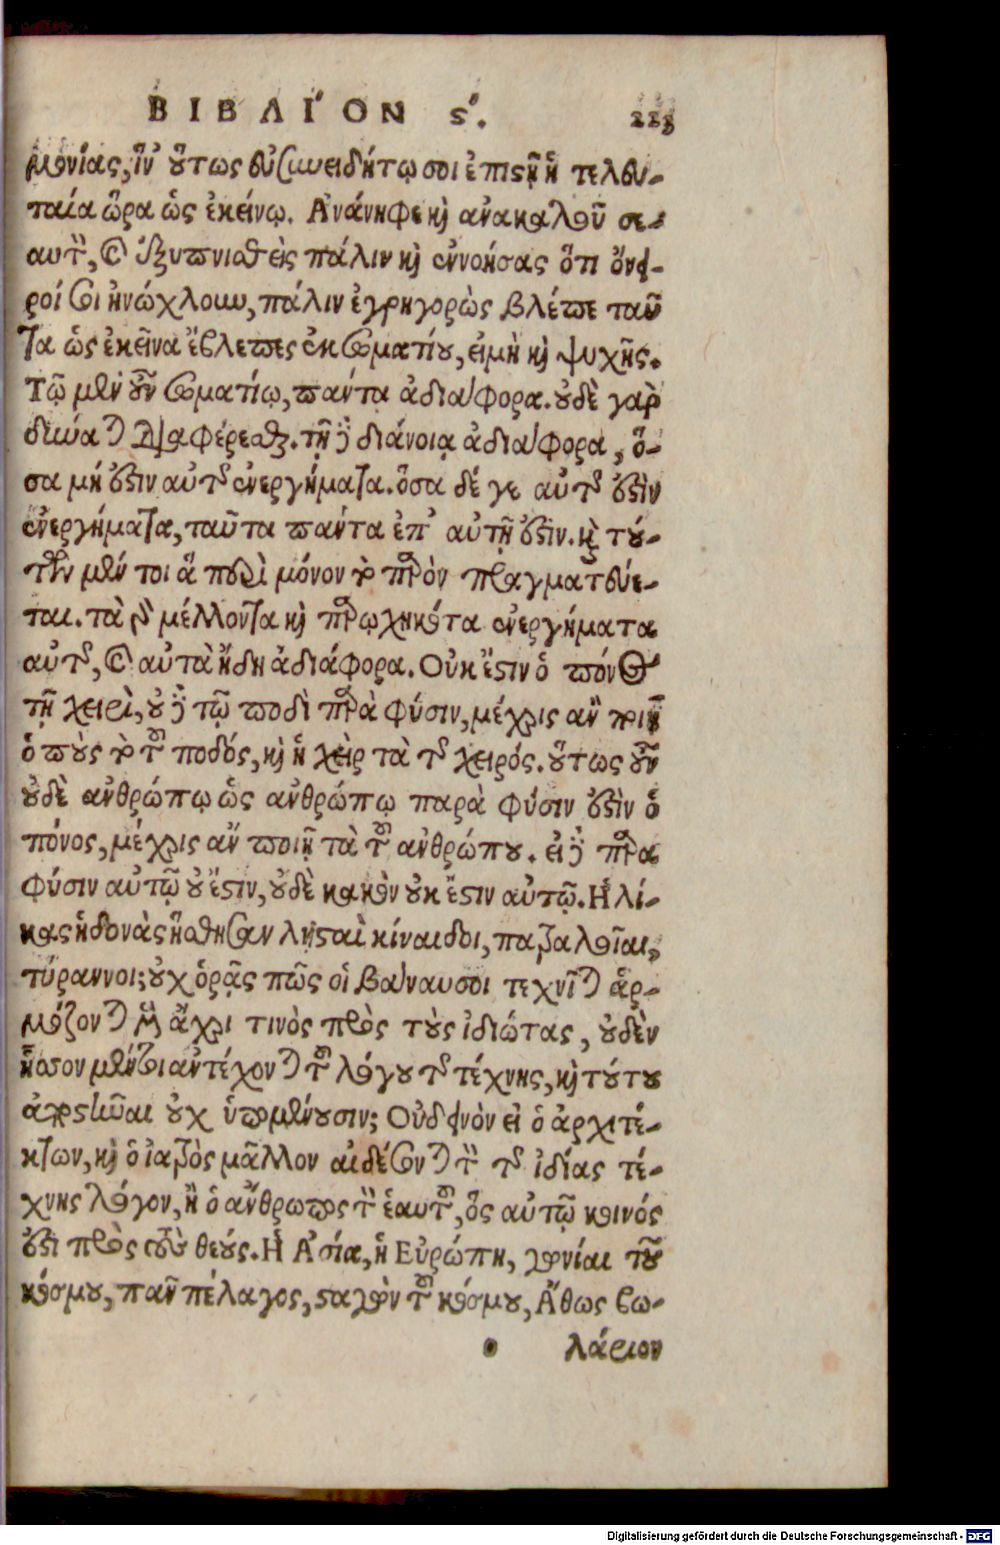 ΒΙΒΛΙ´ΟΝ ϛ´. 223
μονίας, ἵν' οὕτως εὐσυνειδήτῳ σοι ἐπιστῇ ἡ τελευ-
ταία ὥρα ὡς ἐκείνῳ. Ἀνάνηφε καὶ ἀνακαλοῦ σε-
αυτὸν, καὶ ἐξυπνισθεὶς πάλιν καὶ ἐννοήσας ὅτι ὄνει-
ροί σοι ἠνώχλουν, πάλιν ἐγρηγορὼς βλέπε ταῦ
τα ὡς ἐκεῖνα ἔβλεπες ἐκ σωματίου, εἰμὴ καὶ ψυχῆς.
Τῷ μὲν οὖν σωματίῳ, πάντα ἀδιάφορα. οὐδὲ γὰρ
δύναται διαφέρεσθαι. τῇ δὲ διάνοιᾳ ἀδιάφορα, ὅ-
σα μή ἐστιν αὐτῆς ἐνεργήματα. ὅσα δέ γε αὐτῆς ἐστὶν
ἐνεργήματα, ταῦτα πάντα ἐπ' αὐτῇ ἐστιν. καὶ τού-
των μέν τοι ἃ περὶ μόνον τὸ παρὸν πραγματεύε-
ται. τὰ γὰρ μέλλοντα καὶ παρῳχηκότα ἐνεργήματα
αὐτῆς, καὶ αὐτὰ ἤδη ἀδιάφορα. Οὐκ ἔστιν ὁ πόνος
τῇ χειρὶ, οὐδὲ τῷ ποδὶ παρὰ φύσιν, μέχρις ἂν ποιῇ
ὁ ποὺς τὰ τοῦ ποδός, καὶ ἡ χεὶρ τὰ τῆς χειρός. οὕτως οὖν
οὐδὲ ἀνθρώπῳ ὡς ἀνθρώπῳ παρὰ φύσιν ἐστὶν ὁ
πόνος, μέχρις ἂν ποιῇ τὰ τοῦ ἀνθρώπου. εἰ δὲ παρὰ
φύσιν αὐτῷ οὐ ἔστιν, οὐδὲ κακὸν οὐκ ἔστιν αὐτῷ. Ἡλί-
κας ἡδονὰς ἥσθησαν λῃσταὶ κίναιδοι, πατραλοῖαι,
τύραννοι; οὐχ ὁρᾷς πῶς οἱ βάναυσοι τεχνῖται ἁρ-
μόζονται μὲν ἄχρι τινὸς πρὸς τοὺς ἰδιώτας, οὐδὲν
ἧσσον μέντοι ἀντέχονται τοῦ λόγου τῆς τέχνης, καὶ τούτου
ἀποστῆναι οὐχ ὑπομένουσιν; Οὐ δεινὸν εἰ ὁ ἀρχιτέ-
κτων, καὶ ὁ ἰατρὸς μᾶλλον αἰδέσονται τὸν τῆς ἰδίας τέ-
χνης λόγον, ἢ ὁ ἄνθρωπος τὸν ἑαυτοῦ, ὃς αὐτῷ κοινός
ἐστι πρὸς τοὺς θεούς. Ἡ Ἀσία, ἡ Εὐρώπη, γωνίαι τοῦ
κόσμου, πᾶν πέλαγος, σταγὼν τοῦ κόσμου, Ἄθως βω-
λάριον
Digitalisierung gefördert durch die Deutsche Forschungsgemeinschaft - DFG